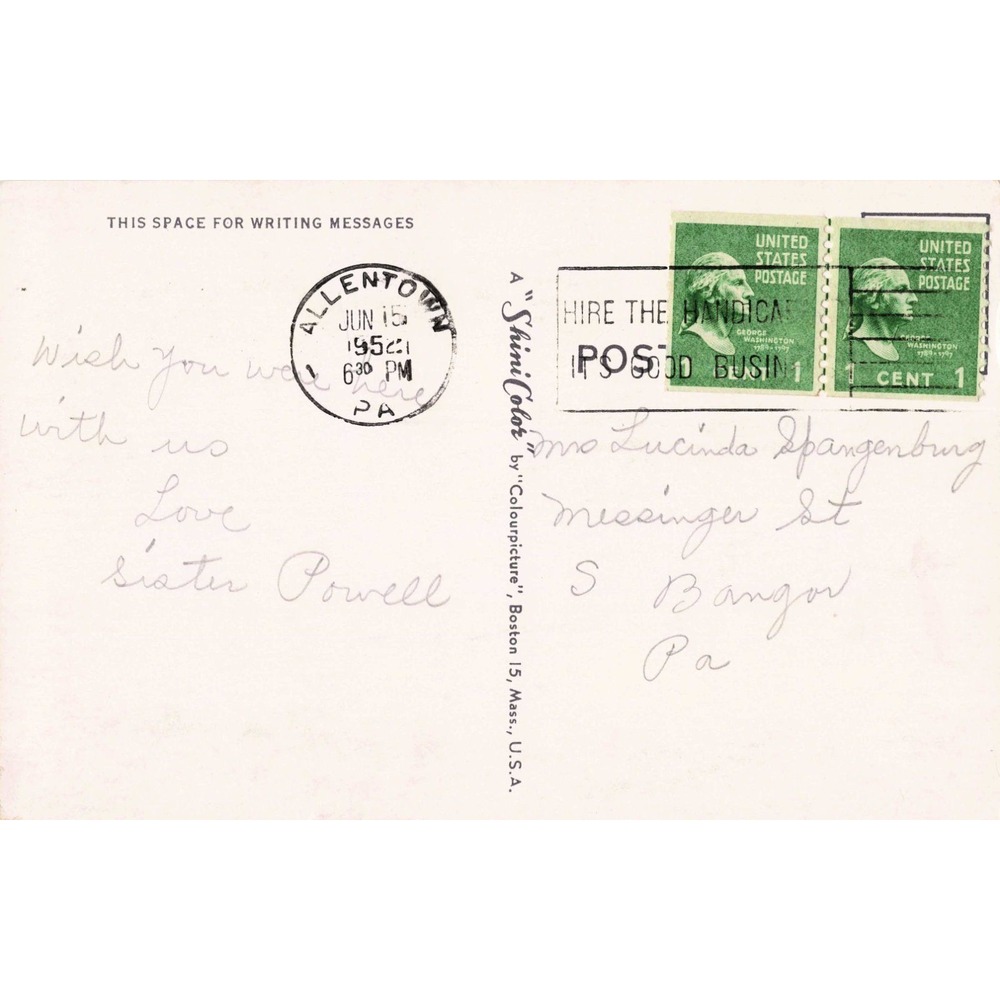 THIS SPACE FOR WRITING MESSAGES
ALLENTOWN
JUN 15
630 PM
PA
1
Wish You were here
with us
Love
Sister Powell
A "ShiniColor" by "Colourpicture", Boston 15, Mass., U.S.A.
UNITED
STATES
POSTAGE
GEORGE
WASHINGTON
1789-1797
CENT 1
UNITED
STATES
POSTAGE
GEORGE
WASHINGTON
1789-1797
1 CENT 1
HIRE THE HANDICA
IT'S GOOD BUSIN
POST
Mrs Lucinda Spangenburg
Messinger St
S Bangor
Pa